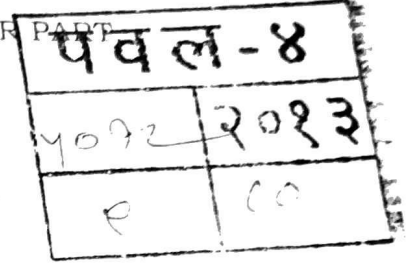 R PART
पवल-४
५०७२ २०१३
१ ८०